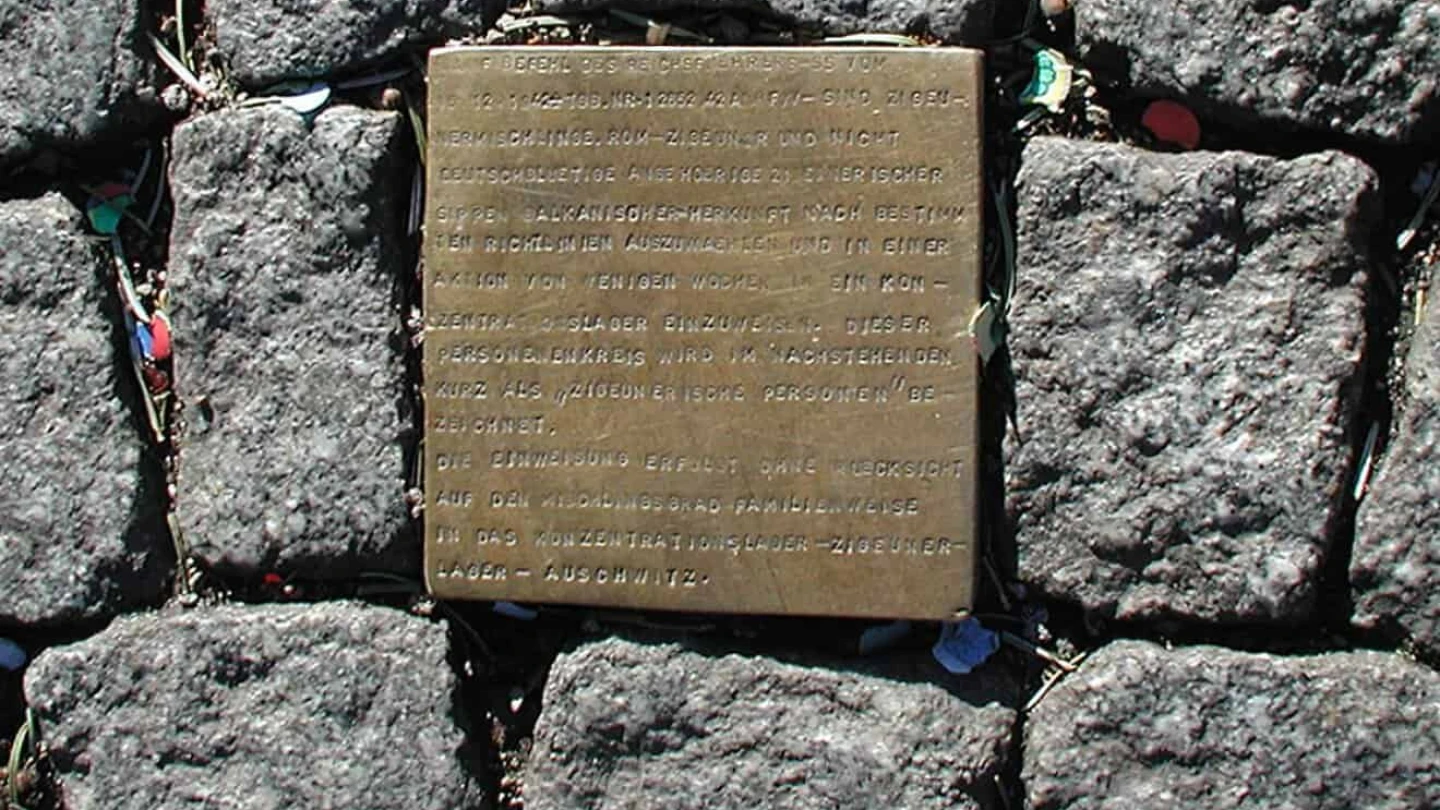 BEFEHL DES REICHSFUEHRERS-SS VOM
16.12.1942 – TGB.NR. I 2652/42 – SIND ZIGEU-
NERMISCHLINGE, ROM-ZIGEUNER UND NICHT
DEUTSCHBLUETIGE ANGEHOERIGE ZIGEUNERISCHER
SIPPEN BALKANISCHER-HERKUNFT NACH BESTIMM
TEN RICHTLINIEN AUSZUWAEHLEN UND IN EINER
AKTION VON WENIGEN WOCHEN IN EIN KON-
ZENTRATIONSLAGER EINZUWEISEN. DIESER
PERSONENENKREIS WIRD IM NACHSTEHENDEN
KURZ ALS „ZIGEUNERISCHE PERSONEN" BE-
ZEICHNET.
DIE EINWEISUNG ERFOLGT OHNE RUECKSICHT
AUF DEN MISCHLINGSGRAD FAMILIENWEISE
IN DAS KONZENTRATIONSLAGER-ZIGEUNER-
LAGER – AUSCHWITZ.